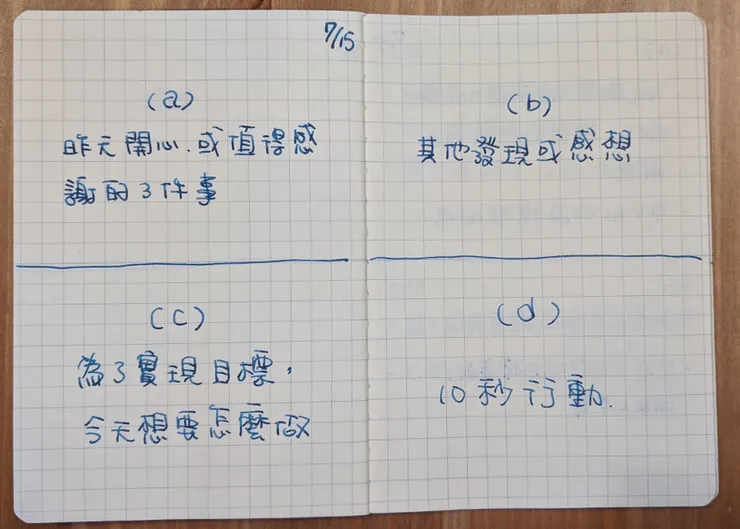 7/15
(a)
昨天開心.或值得感
謝的3件事
(b)
其他發現或感想
(c)
為了實現目標,
今天想要怎麼做
(d)
10秒行動.